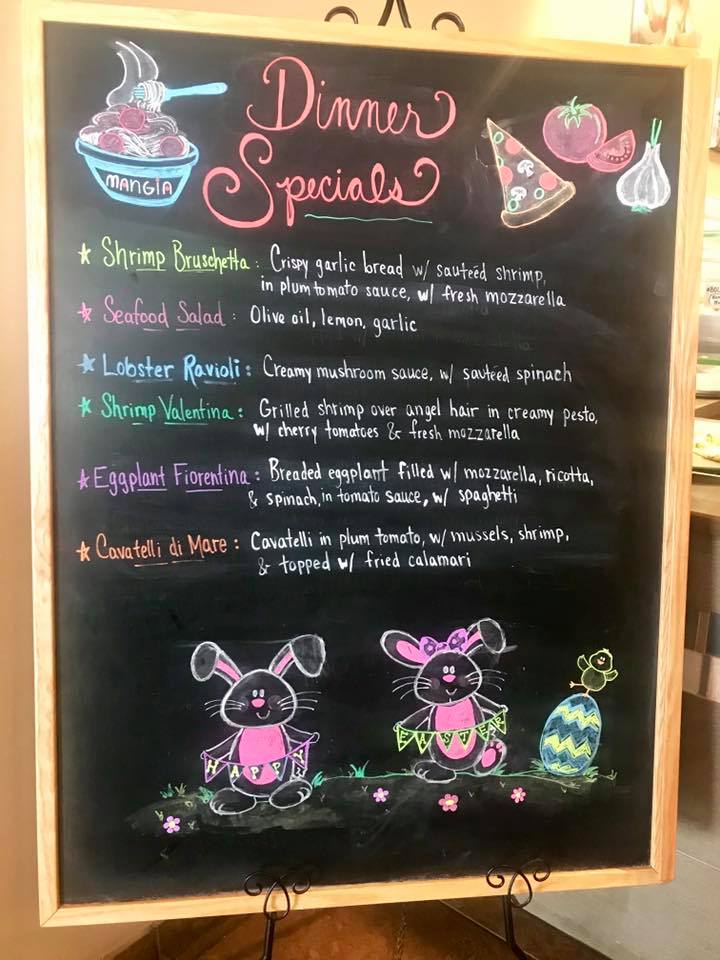 Dinner
Specials
MANGIA
★ Shrimp Bruschetta: Crispy garlic bread w/ sauteéd shrimp,
in plum tomato sauce, w/ fresh mozzarella
★ Seafood Salad: Olive oil, lemon, garlic
★ Lobster Ravioli: Creamy mushroom sauce, w/ sauteéd spinach
★ Shrimp Valentina: Grilled shrimp over angel hair in creamy pesto,
w/ cherry tomatoes & fresh mozzarella
★ Eggplant Fiorentina: Breaded eggplant filled w/ mozzarella, ricotta,
& spinach, in tomato sauce, w/ spaghetti
★ Cavatelli di Mare: Cavatelli in plum tomato, w/ mussels, shrimp,
& topped w/ fried calamari
HAPPY
EASTER